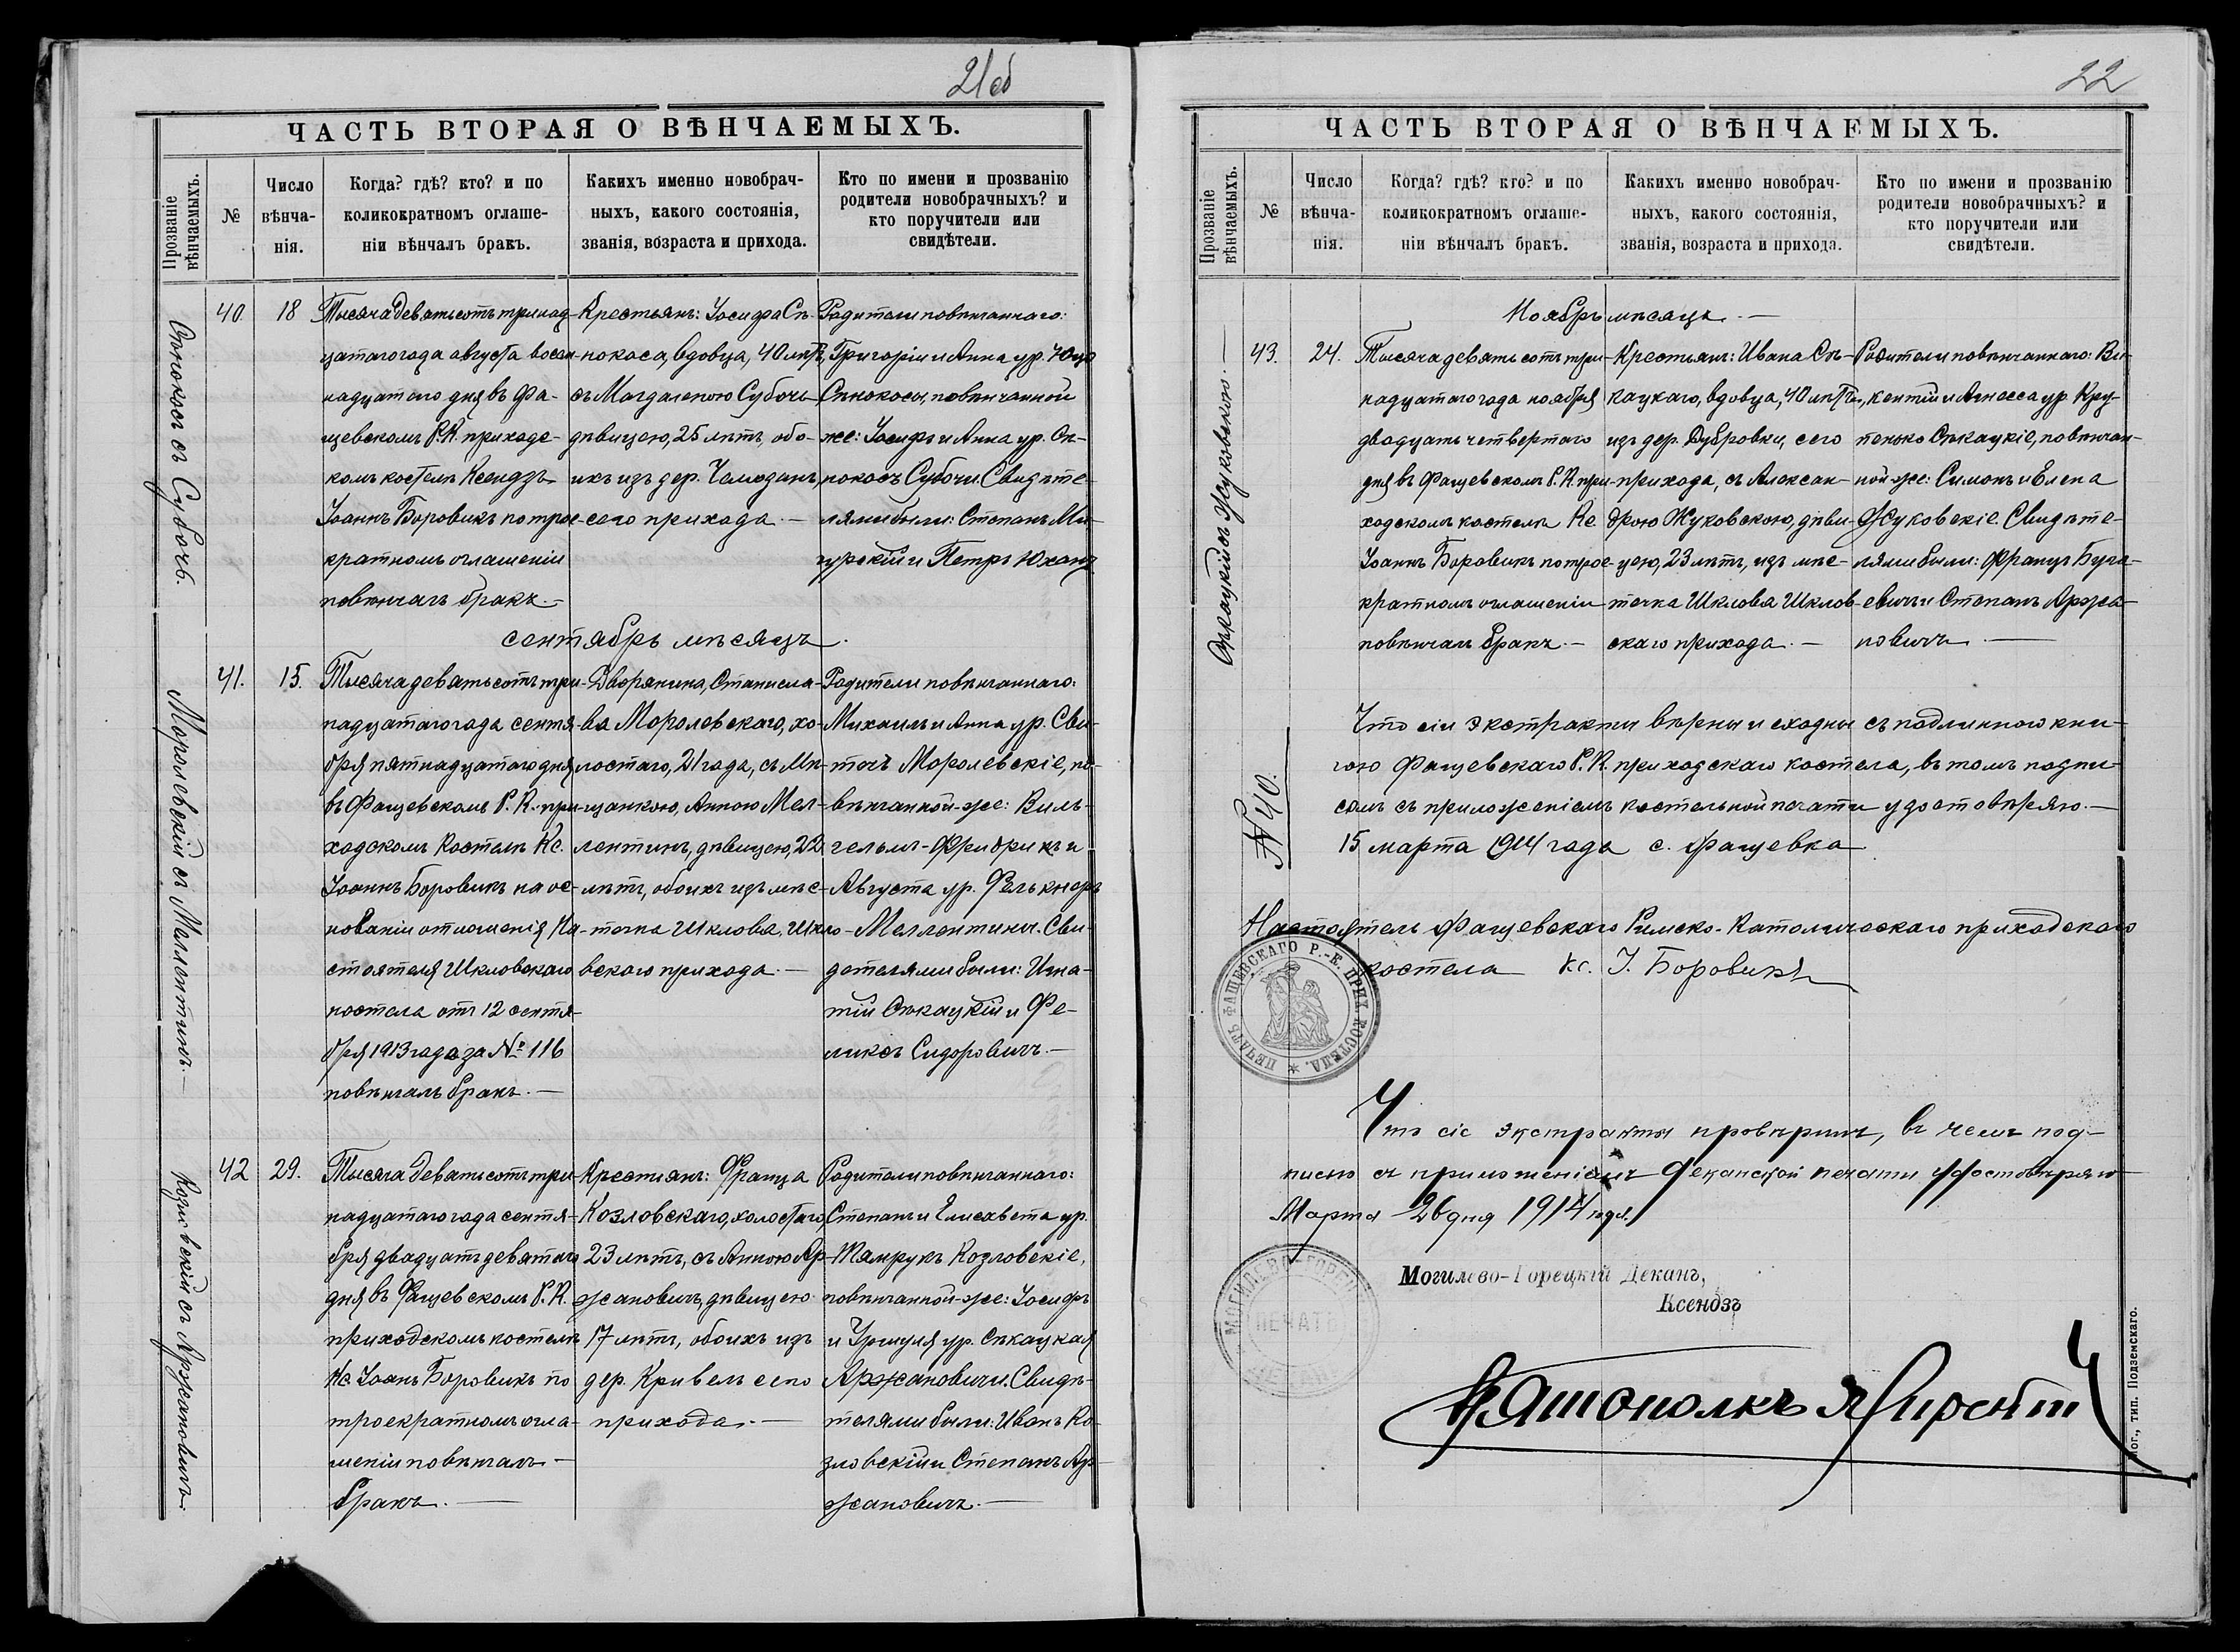 21об
ЧАСТЬ ВТОРАЯ О ВѢНЧАЕМЫХЪ.
Прозваніе вѣнчаемыхъ.
№
Число вѣнча-
нія.
Когда? гдѣ? кто? и по
коликократномъ оглаше-
ніи вѣнчалъ бракъ.
Какихъ именно новобрач-
ныхъ, какого состоянія,
званія, возраста и прихода.
Кто по имени и прозванію
родители новобрачныхъ? и
кто поручители или
свидѣтели.
Сѣнокосъ съ Субочъ.
40.
18
Тысяча девятьсотъ тринад-
цатаго года августа восем-
надцатаго дня въ Фа-
щевскомъ Р.К. приходс-
комъ костелѣ Ксендзъ
Іоаннъ Боровикъ по трое-
кратномъ оглашеніи
повѣнчалъ бракъ.—
Крестьянъ: Іосифа Сѣ-
нокоса, вдовца, 40 лѣтъ,
съ Магдаленою Субочъ
дѣвицею, 25 лѣтъ, обо-
ихъ изъ дер.
сего прихода.—
Родители повѣнчаннаго:
Григорій и Анна ур.
Сѣнокосы, повѣнчанной
же: Іосифъ и Анна ур. Сѣ-
нокосъ Субочи. Свидѣте-
лями были: Степанъ Ми-
цускій и Петръ
сентябрь мѣсяцъ.
Моролевскій съ Меллентинъ.—
41.
15.
Тысяча девятьсотъ три-
надцатаго года сентя-
бря пятнадцатаго дня
въ Фащевскомъ Р.К. при-
ходскомъ костелѣ Кс.
Іоаннъ Боровикъ на ос-
нованіи отношенія На-
стоятеля Шкловскаго
костела отъ 12 сентя-
бря 1913 года за № 116
повѣнчалъ бракъ.—
Дворянина, Станисла-
ва Моролевскаго, хо-
лостаго, 21 года, съ Мѣ-
щанкою, Анною Мел-
лентинъ, дѣвицею, 22
лѣтъ, обоихъ изъ мѣс-
течка Шклова, Шкло-
вскаго прихода.—
Родители повѣнчаннаго:
Михаилъ и Анна ур. Сви-
точъ Моролевскіе, по-
вѣнчанной-же: Виль-
гельмъ-Фридрихъ и
Августа ур.
Меллентины. Сви-
детелями были: Игна-
тій Сѣкацкій и Фе-
ликсъ Сидоровичъ.—
Козловскій съ Аржановичъ.
42
29.
Тысяча девятьсотъ три-
надцатаго года сентя-
бря двадцать девятаго
дня въ Фащевскомъ Р.К.
приходскомъ костелѣ
Кс Іоанъ Боровикъ по
троекратномъ огла-
шеніи повѣнчалъ—
бракъ.—
Крестьянъ: Франца
Козловскаго, холостаго,
23 лѣтъ, съ Анною Ар-
жановичъ, дѣвицею
17 лѣтъ, обоихъ изъ
дер. Кривель сего
прихода.—
Родители повѣнчаннаго:
Степанъ и Елисавета ур.
Козловскіе,
повѣнчанной-же: Іосифъ
и Уршуля ур. Сѣкацкая
Аржановичи. Свидѣ-
телями были: Иванъ Ко-
зловскій и Степанъ Ар-
жановичъ.—
22
ЧАСТЬ ВТОРАЯ О ВѢНЧАЕМЫХЪ.
Прозваніе вѣнчаемыхъ.
№
Число вѣнча-
нія.
Когда? гдѣ? кто? и по
коликократномъ оглаше-
ніи вѣнчалъ бракъ.
Какихъ именно новобрач-
ныхъ, какого состоянія,
званія, возраста и прихода.
Кто по имени и прозванію
родители новобрачныхъ? и
кто поручители или
свидѣтели.
Ноябрь мѣсяцъ.—
Сѣкацкій съ Жуковскою.—
43.
24.
Тысяча девятьсотъ три-
надцатаго года ноября
двадцать четвертаго
дня въ Фащевскомъ Р.К. при-
ходскомъ костелѣ Кс.
Іоаннъ Боровикъ по трое-
кратномъ оглашеніи
повѣнчалъ бракъ.—
Крестьянъ: Ивана Сѣ-
кацкаго, вдовца, 40 лѣтъ,
изъ дер. Дубровки, сего
прихода, съ Алексан-
дрою Жуковскою, дѣви-
цею, 23 лѣтъ, изъ мѣс-
течка Шклова Шклов-
скаго прихода.—
Родители повѣнчаннаго: Ви-
кентій и Агнесса ур. Кру-
пенько Сѣкацкіе, повѣнчан-
ной-же: Симонъ и Елена
Жуковскіе. Свидѣте-
лями были: Францъ Буча-
евичъ и Степанъ Аржа-
новичъ—
№ 40.
Что сіи экстракты вѣрны и сходны съ подлинною кни-
гою Фащевскаго Р.К. приходскаго костела, въ томъ подпи-
сомъ съ приложеніемъ костельной печати удостовѣряю.—
15 марта 1914 года с. Фащевка
Настоятель Фащевскаго Римско-Католическаго приходскаго
костела Кс. І. Боровикъ
ПЕЧАТЬ ФАЩЕВСКАГО Р.-К. ПРИХ. КОСТЕЛА.
Что сіе экстракты провѣрилъ, въ чемъ под-
писью съ приложеніемъ деканской печати удостовѣряю
Марта 26 дня 1914 года.
ПЕЧАТЬ
Могилево-Горецкій Деканъ,
Ксендзъ
Мог., тип. Подземскаго.